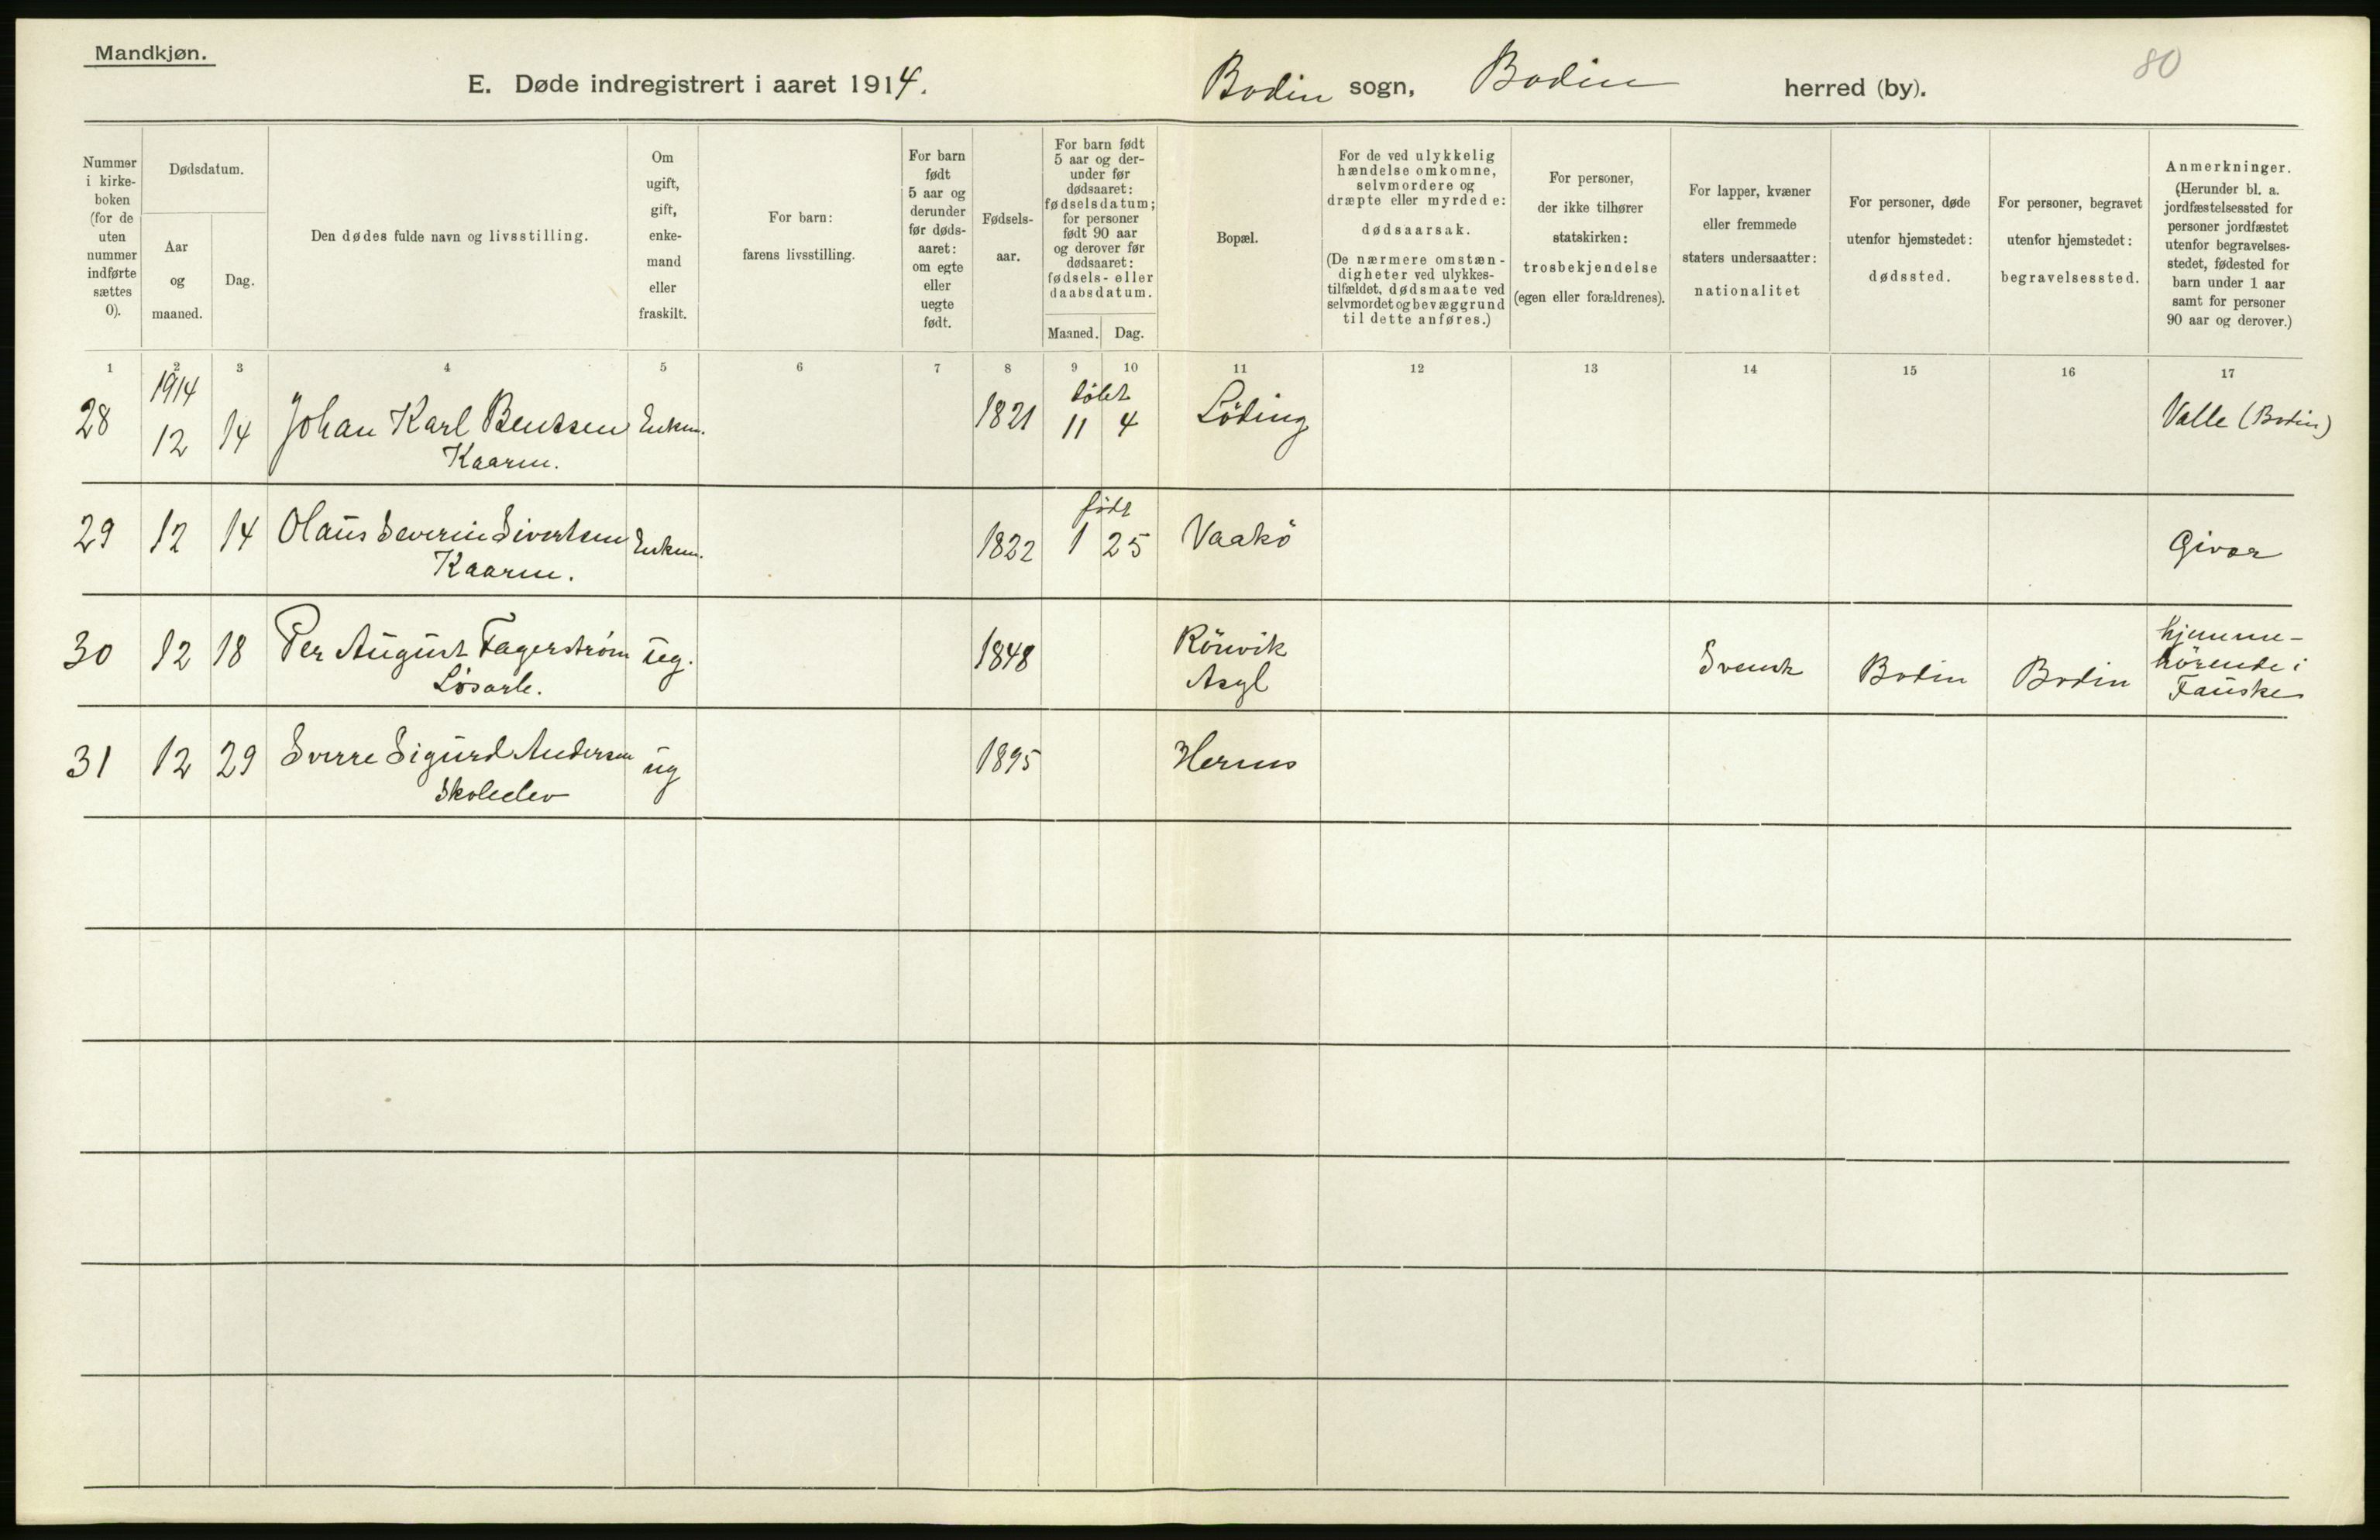 Mandkjøn.
E. Døde indregistrert i aaret 1914.
Bodin sogn, Bodin herred (by).
80
Nummer
i kirke-
boken
(for de
uten
nummer
indførte
sættes
0).
Dødsdatum.
Aar
og
maaned.
Dag.
Den dødes fulde navn og livsstilling.
Om
ugift,
gift,
enke-
mand
eller
fraskilt.
For barn:
farens livsstilling.
For barn
født
5 aar og
derunder
før døds-
aaret:
om egte
eller
uegte
født.
Fødsels-
aar.
For barn født
5 aar og der-
under før
dødsaaret:
fødselsdatum;
for personer
født 90 aar
og derover før
dødsaaret:
fødsels- eller
daabsdatum.
Maaned.
Dag.
Bopæl.
For de ved ulykkelig
hændelse omkomne,
selvmordere og
dræpte eller myrdede:
dødsaarsak.
(De nærmere omstæn-
digheter ved ulykkes-
tilfældet, dødsmaate ved
selvmordet og bevæggrund
til dette anføres.)
For personer,
der ikke tilhører
statskirken:
trosbekjendelse
(egen eller forældrenes).
For lapper, kvæner
eller fremmede
staters undersaatter:
nationalitet
For personer, døde
utenfor hjemstedet:
dødssted.
For personer, begravet
utenfor hjemstedet:
begravelsessted.
Anmerkninger.
(Herunder bl. a.
jordfæstelsessted for
personer jordfæstet
utenfor begravelses-
stedet, fødested for
barn under 1 aar
samt for personer
90 aar og derover.)
1 2 3 4 5 6 7 8 9 10 11 12 13 14 15 16 17
1914 döbt
28 12 14 Johan Karl Bentsen Enkm. 1821 11 4 Löding Valle (Bodin)
Kaarm.
födt
29 12 14 Olaus Severin Sivertsen Enkm. 1822 1 25 Vaakö Givær
Kaarm.
30 12 18 Per August Fagerstrøm ug. 1848 Rönvik Svensk Bodin Bodin hjemme-
Løsarb. Asyl hörende i
Fauske
31 12 29 Sverre Sigurd Andersen ug 1895 Hernes
Skoleelev